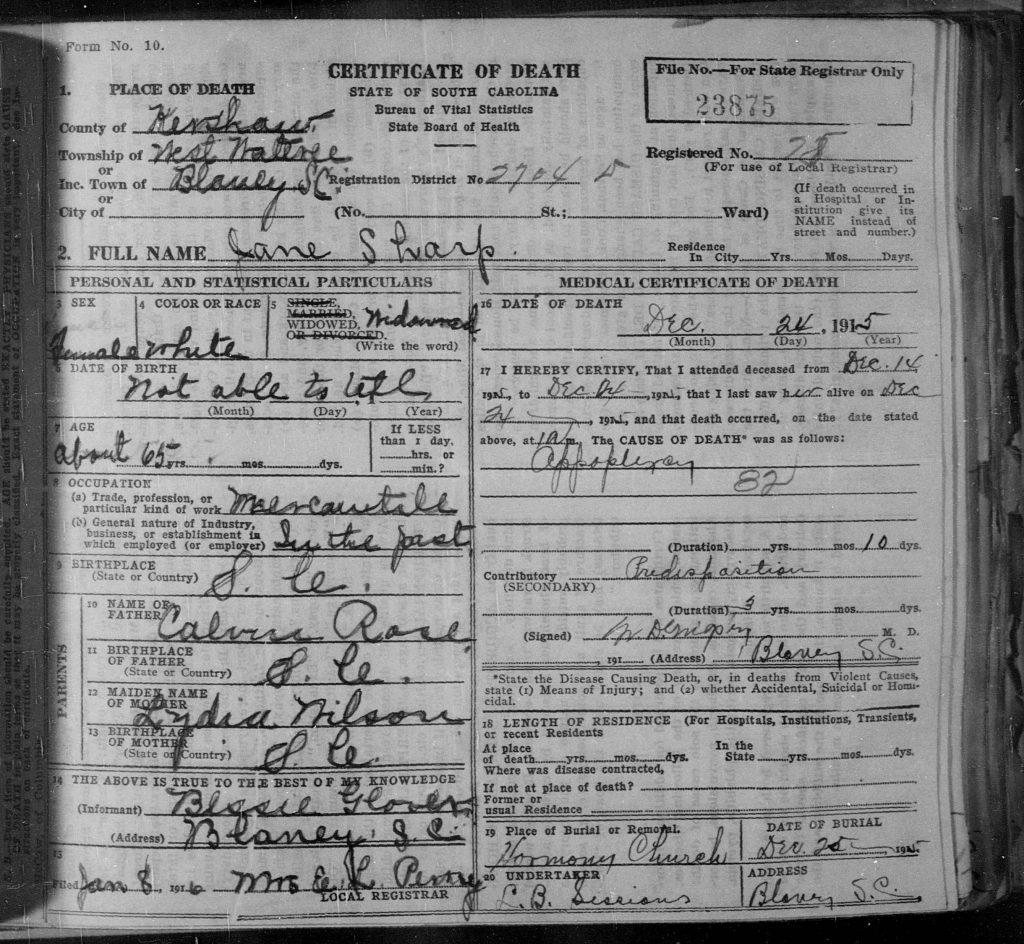 Form No. 10.
CERTIFICATE OF DEATH
STATE OF SOUTH CAROLINA
Bureau of Vital Statistics
State Board of Health
File No.—For State Registrar Only
23875
1. PLACE OF DEATH
County of Kershaw
Township of West Wateree
or
Inc. Town of Blaney S.C. Registration District No 2704 D
or
City of (No. St.; Ward)
Registered No. 28
(For use of Local Registrar)
(If death occurred in a Hospital or Institution give its NAME instead of street and number.)
2. FULL NAME Jane Sharp.
Residence In City Yrs. Mos. Days.
PERSONAL AND STATISTICAL PARTICULARS
3 SEX
Female
4 COLOR OR RACE
White
5 SINGLE, MARRIED, WIDOWED, OR DIVORCED. Widowed
(Write the word)
6 DATE OF BIRTH
Not able to tell
(Month) (Day) (Year)
7 AGE
about 65 yrs. mos. dys.
If LESS than 1 day. hrs. or min.?
8 OCCUPATION
(a) Trade, profession, or particular kind of work Mercantile
(b) General nature of Industry, business, or establishment in which employed (or employer) In the past
9 BIRTHPLACE
(State or Country) S. C.
PARENTS
10 NAME OF FATHER Calvin Rose
11 BIRTHPLACE OF FATHER
(State or Country) S. C.
12 MAIDEN NAME OF MOTHER Lydia Wilson
13 BIRTHPLACE OF MOTHER
(State or Country) S. C.
14 THE ABOVE IS TRUE TO THE BEST OF MY KNOWLEDGE
(Informant) Bessie Glover
(Address) Blaney S.C.
15
Filed Jan 8, 1916 Mrs E. K. Perry
LOCAL REGISTRAR
MEDICAL CERTIFICATE OF DEATH
16 DATE OF DEATH
Dec. 24, 1915
(Month) (Day) (Year)
17 I HEREBY CERTIFY, That I attended deceased from Dec. 14
1915, to Dec 24, 1915, that I last saw her alive on Dec
24, 1915, and that death occurred, on the date stated
above, at 1 a m. The CAUSE OF DEATH* was as follows:
Appoplexy
82
(Duration) yrs. mos. 10 dys.
Contributory Predisposition
(SECONDARY)
(Duration) 3 yrs. mos. dys.
(Signed) M. D.
, 191 (Address) Blaney S.C.
*State the Disease Causing Death, or, in deaths from Violent Causes,
state (1) Means of Injury; and (2) whether Accidental, Suicidal or Homi-
cidal.
18 LENGTH OF RESIDENCE (For Hospitals, Institutions, Transients,
or recent Residents
At place of death yrs. mos. dys. In the State yrs. mos. dys.
Where was disease contracted,
If not at place of death?
Former or
usual Residence
19 Place of Burial or Removal.
Harmony Church
DATE OF BURIAL
Dec. 25 1915
20 UNDERTAKER
L.B. Sessions
ADDRESS
Blaney S.C.